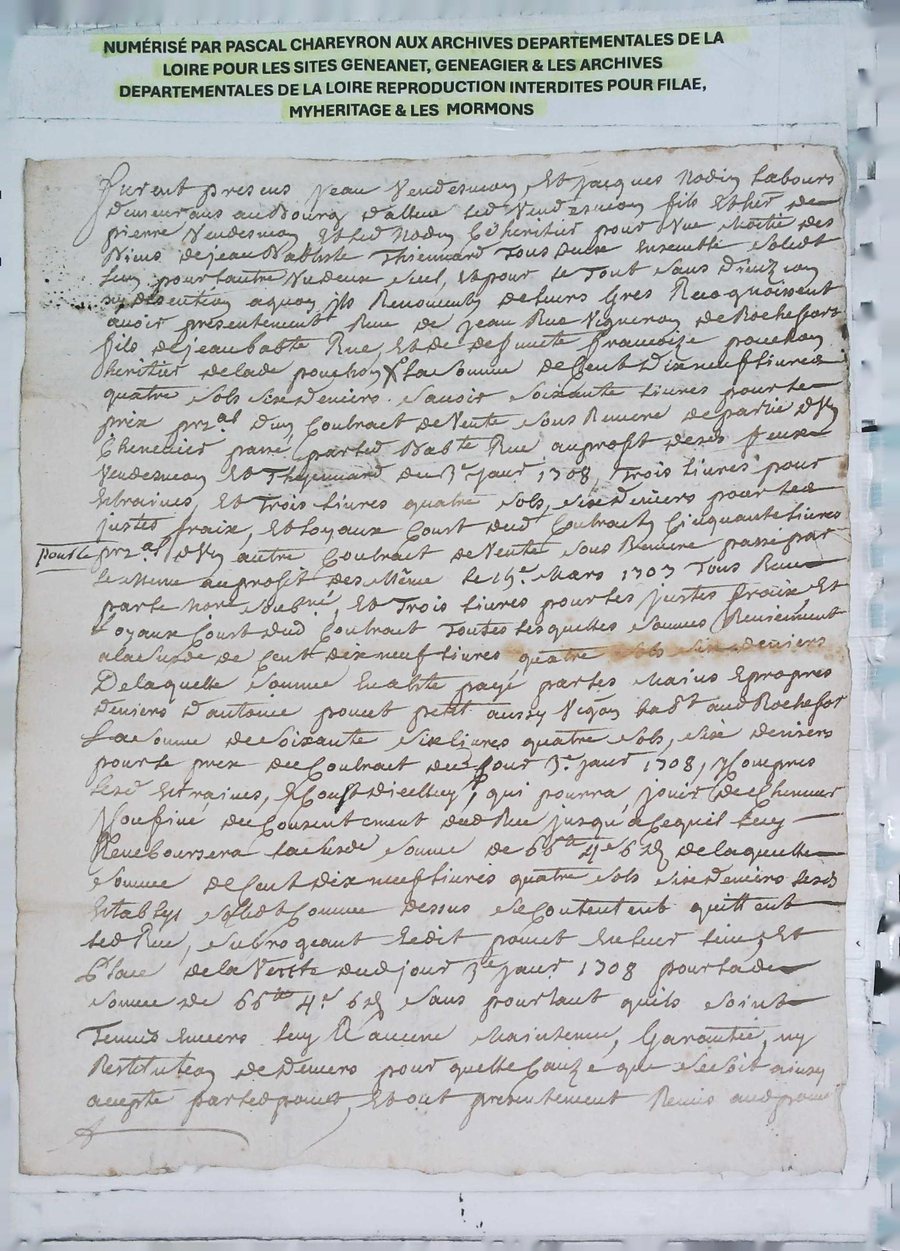 NUMÉRISÉ PAR PASCAL CHAREYRON AUX ARCHIVES DEPARTEMENTALES DE LA
LOIRE POUR LES SITES GENEANET, GENEAGIER & LES ARCHIVES
DEPARTEMENTALES DE LA LOIRE REPRODUCTION INTERDITES POUR FILAE,
MYHERITAGE & LES MORMONS
furent presens jean Vendesmon Et jacques Nodin Labours
demeurans au Bourg led Vendesmon fils Ether de
pierre Vendesmon Et led Nodin Coheritier pour Une Moitié des
biens de jean Babtiste Thiennard Tous deux Ensemble Solidt
lun pour lautre Un deux Seul, Et pour le Tout Sans
ny a quoy ils Renoncent, de leurs Gres Recognoissent
avoir presentement Receu de jean Rue Vigneron de Rochefort
fils de jean babte Rue, Et de deffuncte francoise pouchon
heritier de lade pouchon La Somme de Cent dix neuf livres
quatre Sols Six deniers Savoir Soixante livres pour le
prix prãl dun Contract de Vente Sous Remere de partie dun
Chenevier passé par led Babte Rue au profit desds feux
Vendesmon Et Thiennard du 3e janr 1708, Trois livres pour
Etraines, Et Trois livres quatre Sols, Six deniers pour les
justes fraix, Et loyaux Court dud Contract, Cinquante livres
pour le prãl dun autre Contract de Vente Sous Remere passé par
le Meme au profit des Même le Mars 1707 Tous Receu
par le Nore Et Trois livres pour les justes fraix, Et
loyaux Court dud Contract Toutes lesquelles Sommes Reviennent
a la Susde de Cent dix neuf livres quatre Sols Six deniers
De laquelle Somme En a Eté payé par les Mains Et propres
deniers d'antoine poncet petit aussy Vigon dud Rochefort
La Somme de Soixante Six livres quatre Sols, Six deniers
pour le prix du Contract dud jour 3e janr 1708, y Compris
lesd Etraines, Et Coust dicelluy, qui pourra jouir du Chenevier
du Consentement dud Rue jusqu'a Ce quil luy
Remboursera la Susde Somme de 66lt 4s 6d de laquelle
Somme de Cent dix neuf livres quatre Sols Six deniers lesds
Etablys Solidt Comme dessus Se Contentent quittent
led Rue, Subrogeant ledit poncet En leur lieu, Et
place de la Vente dud jour 3e janr 1708 pour lade
Somme de 66lt 4s 6d Sans pourtant quils Soint
Tenus Envers luy Maintenue, Garantie, ny
Restitution de deniers pour quelle Cauze que Ce Soit ainsy
accepté par led poncet, Et ont presentement Remis aud poncet